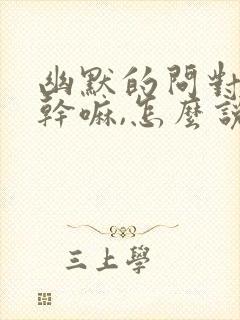 幽默的問對
幹嘛,怎麼說
三上學